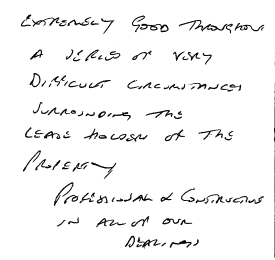 EXTREMELY GOOD THROUGHOUT
A SERIES OF VERY
DIFFICULT CIRCUMSTANCES
SURROUNDING THE
LEASE HOLDER OF THE
PROPERTY
PROFESSIONAL & CONSTRUCTIVE
IN ALL OF OUR
DEALINGS